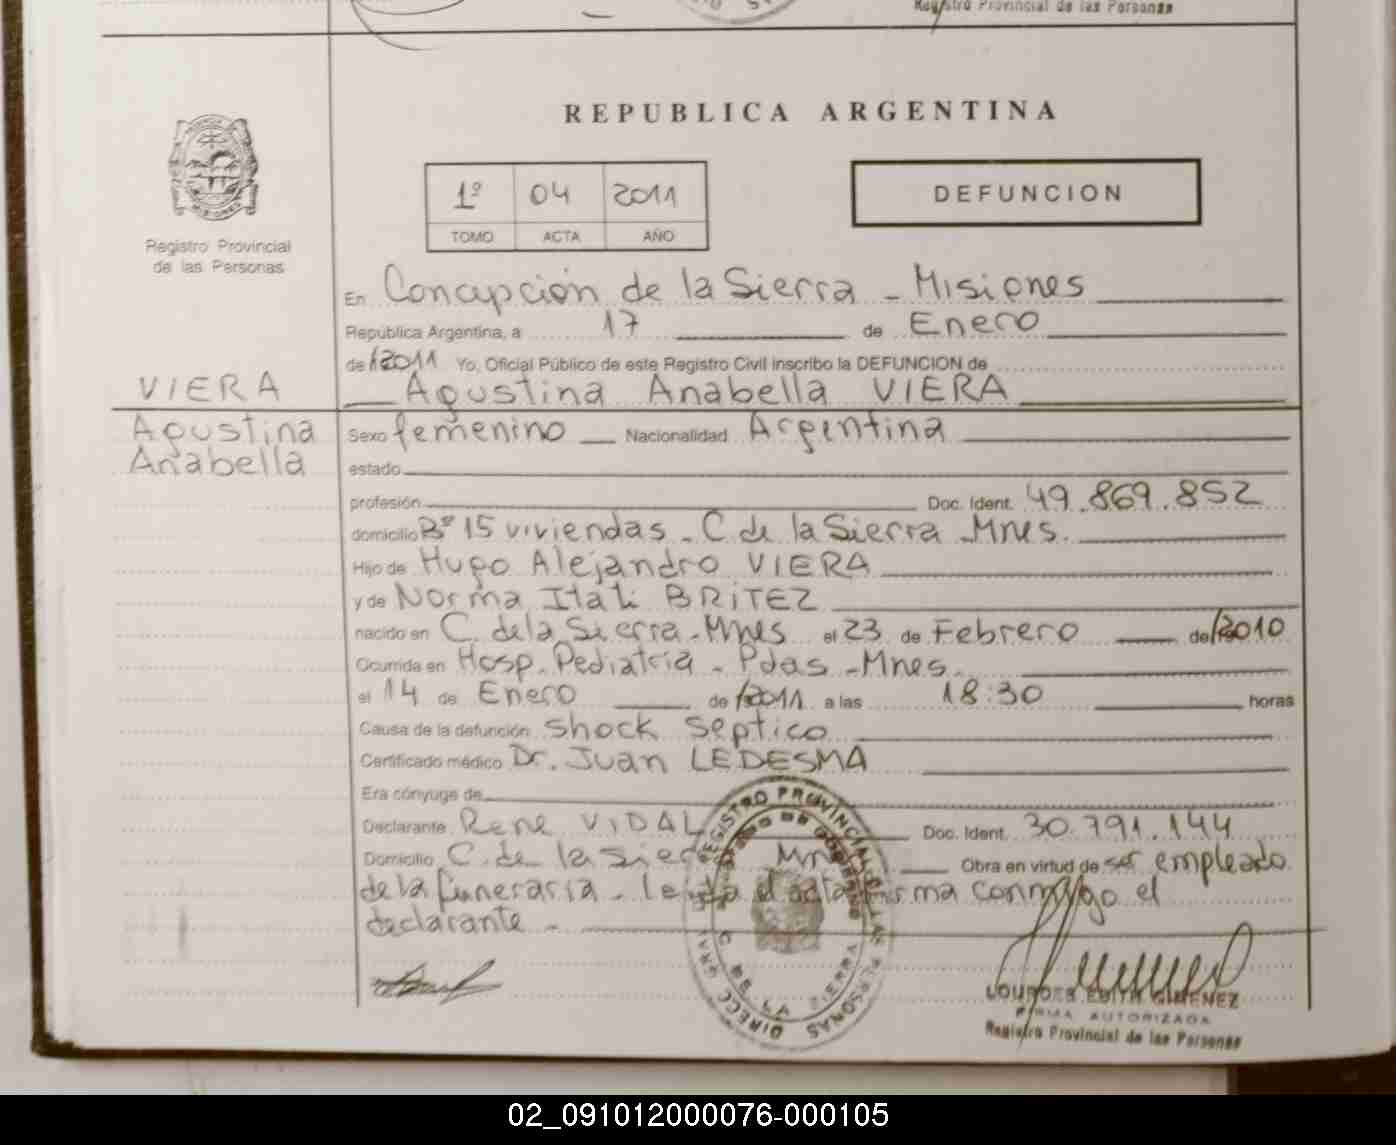 Registro Provincial de las Personas
REPUBLICA ARGENTINA
1º 04 2011
TOMO ACTA AÑO
DEFUNCION
PROVINCIA MISIONES
Registro Provincial
de las Personas
En Concepción de la Sierra - Misiones
República Argentina, a 17 de Enero
de 2011 Yo, Oficial Público de este Registro Civil inscribo la DEFUNCION de
VIERA
Agustina Anabella VIERA
Agustina
Anabella
Sexo femenino Nacionalidad Argentina
estado
profesión Doc. Ident. 49.869.852
domicilio Bº 15 viviendas - C de la Sierra Mnes.
Hijo de Hugo Alejandro VIERA
y de Norma Itati BRITEZ
nacido en C. de la Sierra - Mnes el 23 de Febrero de 2010
Ocurrida en Hosp. Pediatria - Pdas - Mnes.
el 14 de Enero de 2011 a las 18:30 horas
Causa de la defunción Shock Septico
Certificado médico Dr. Juan LEDESMA
Era cónyuge de
Declarante Rene VIDAL Doc. Ident. 30.791.144
Domicilio C. de la Sierra Mnes Obra en virtud de ser empleado
de la funeraria - Leida el acta firma conmigo el
declarante -
DIRECC. GRAL. REGISTRO PROVINCIAL DE LAS PERSONAS
C. DE LA SIERRA
LOURDES EDITH GIMENEZ
FIRMA AUTORIZADA
Registro Provincial de las Personas
02_091012000076-000105